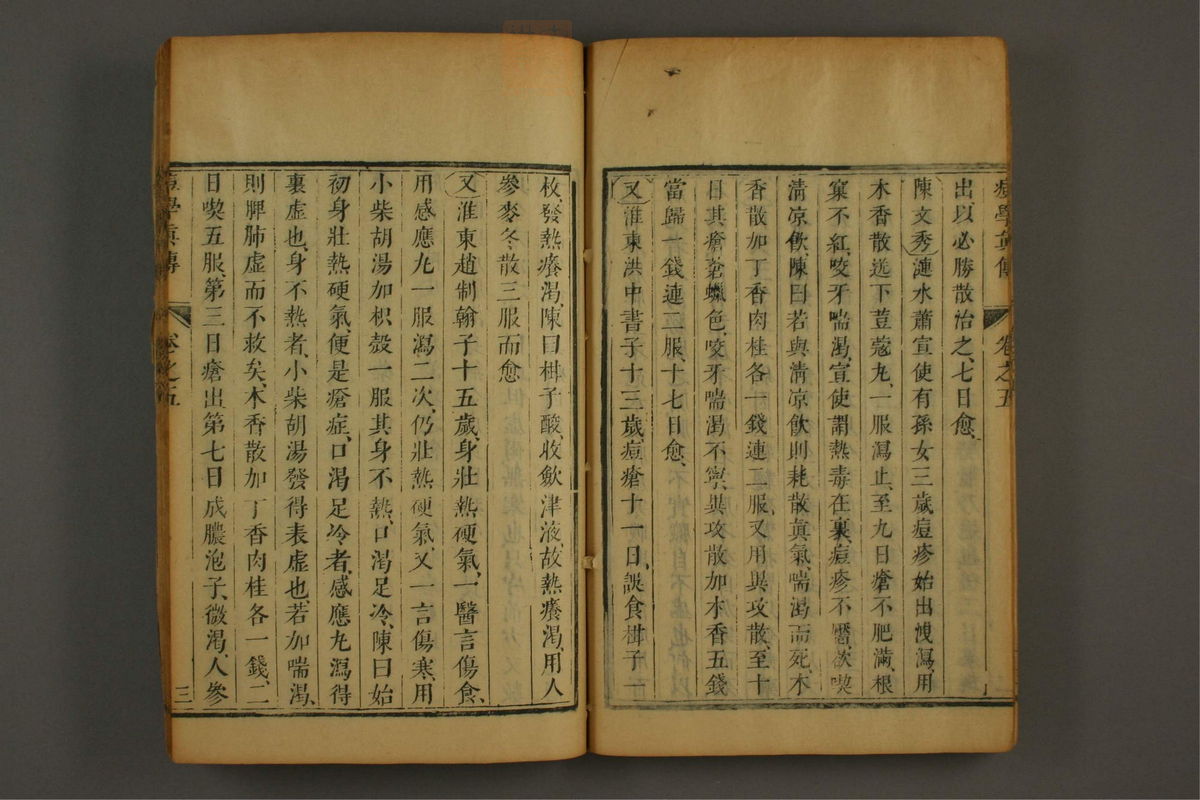 痘學真傳　卷之五
出以必勝散治之七日愈
陳文秀漣水蕭宣使有孫女三歲痘疹始出洩瀉用
木香散送下荳蔻丸一服瀉止至九日瘡不肥滿根
窠不紅咬牙喘渴宣使謂熱毒在裏痘疹不靨欲喫
清凉飲陳曰若與清凉飲則耗散真氣喘渴而死木
香散加丁香肉桂各一錢連二服又用異攻散至十
日其瘡蒼蠟色咬牙喘渴不寧異攻散加木香五錢
當歸一錢連二服十七日愈
又淮東洪中書子十三歲痘瘡十一日誤食柑子一
枚發熱癢渴陳曰柑子酸收歛津液故熱癢渴用人
參麥冬散三服而愈
又淮東趙制翰子十五歲身壯熱硬氣一醫言傷食
用感應丸一服瀉二次仍壯熱硬氣又一言傷寒用
小柴胡湯加枳殼一服其身不熱口渴足冷陳曰始
初身壯熱硬氣便是瘡症口渴足冷者感應丸瀉得
裏虛也身不熱者小柴胡湯發得表虛也若加喘渴
則脾肺虛而不救矣木香散加丁香肉桂各一錢二
日喫五服第三日瘡出第七日成膿泡子微渴人參
痘學真傳　卷之五　三